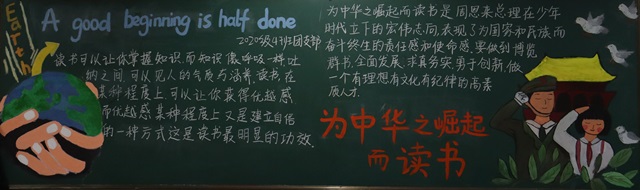 Earth
A good beginning is half done
2020级43班团支部
读书可以让你掌握知识,而知识像呼吸一样,吐
纳之间,可以见人的气度与涵养,读书,在
某种程度上可以让你获得优越感,
而优越感某种程度上又是建立自信
的一种方式这是读书最明显的功效。
为中华之崛起而读书是周恩来总理在少年
时代立下的宏伟志向,表现了为国家和民族而
奋斗终生的责任感和使命感,要做到博览
群书,全面发展,求真务实,勇于创新,做
一个有理想有文化有纪律的高素
质人才.
为中华之崛起
而读书